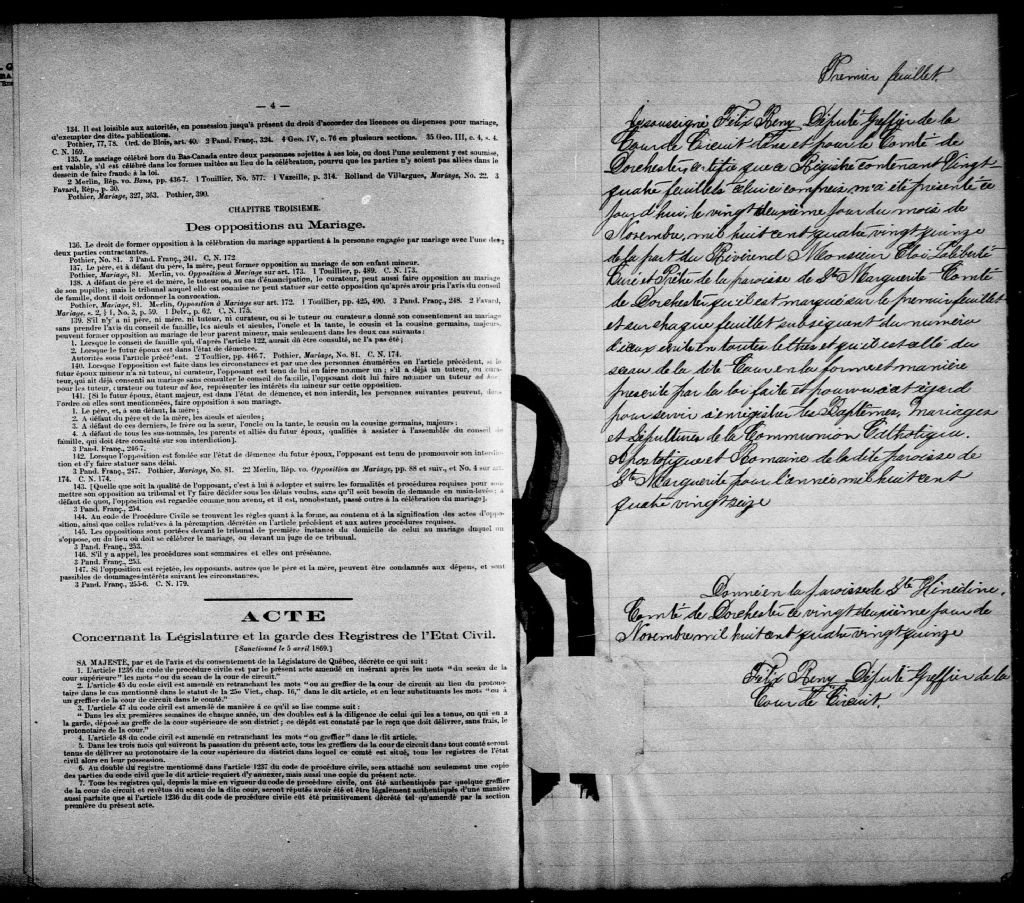 — 4 —
134. Il est loisible aux autorités, en possession jusqu'à présent du droit d'accorder des licences ou dispenses pour mariage,
d'exempter des dites publications.
Pothier, 77, 78. Ord. de Blois, art. 40. 2 Pand. Franç., 324. 4 Geo. IV, c. 76 en plusieurs sections. 35 Geo. III, c. 4, s. 4.
C. N. 169.
135. Le mariage célébré hors du Bas-Canada entre deux personnes sujettes à ses lois, ou dont l'une seulement y est soumise,
est valable, s'il est célébré dans les formes usitées au lieu de la célébration, pourvu que les parties n'y soient pas allées dans le
dessein de faire fraude à la loi.
2 Merlin, Rép. vo. Bans, pp. 436-7. 1 Touillier, No. 577. 1 Vazeille, p. 314. Rolland de Villargues, Mariage, No. 22. 3
Favard, Rép., p. 30.
Pothier, Mariage, 327, 363. Pothier, 390.
CHAPITRE TROISIEME.
Des oppositions au Mariage.
136. Le droit de former opposition à la célébration du mariage appartient à la personne engagée par mariage avec l'une des
deux parties contractantes.
Pothier, No. 81. 3 Pand. Franç., 241. C. N. 172.
137. Le père, et à défaut du père, la mère, peut former opposition au mariage de son enfant mineur.
Pothier, Mariage, 81. Merlin, vo. Opposition à Mariage sur art. 173. 1 Touillier, p. 489. C. N. 173.
138. A défaut de père et de mère, le tuteur ou, au cas d'émancipation, le curateur, peut aussi faire opposition au mariage
de son pupille; mais le tribunal auquel elle est soumise ne peut statuer sur cette opposition qu'après avoir pris l'avis du conseil
de famille, dont il doit ordonner la convocation.
Pothier, Mariage, 81. Merlin, Opposition à Mariage sur art. 172. 1 Touillier, pp. 425, 490. 3 Pand. Franç., 248. 2 Favard,
Mariage, s. 2, § 1, No. 3, p. 59. 1 Delv., p. 62. C. N. 175.
139. S'il n'y a ni père, ni mère, ni tuteur, ni curateur, ou si le tuteur ou curateur a donné son consentement au mariage
sans prendre l'avis du conseil de famille, les aïeuls et aïeules, l'oncle et la tante, le cousin et la cousine germains, majeurs,
peuvent former opposition au mariage de leur parent mineur, mais seulement dans les deux cas suivants:
1. Lorsque le conseil de famille qui, d'après l'article 122, aurait dû être consulté, ne l'a pas été;
2. Lorsque le futur époux est dans l'état de démence.
Autorités sous l'article précédent. 2 Toullier, pp. 446-7. Pothier, Mariage, No. 81. C. N. 174.
140. Lorsque l'opposition est faite dans les circonstances et par une des personnes énumérées en l'article précédent, si le
futur époux mineur n'a ni tuteur, ni curateur, l'opposant est tenu de lui en faire nommer un; s'il a déjà un tuteur, ou cura-
teur, qui ait déjà consenti au mariage sans consulter le conseil de famille, l'opposant doit lui faire nommer un tuteur ad hoc
pour les tuteur, curateur ou tuteur ad hoc, représenter les intérêts du mineur sur cette opposition.
141. [Si le futur époux, étant majeur, est dans l'état de démence, et non interdit, les personnes suivantes peuvent, dans
l'ordre où elles sont mentionnées, faire opposition à son mariage.
1. Le père, et, à son défaut, la mère;
2. A défaut du père et de la mère, les aïeuls et aïeules;
3. A défaut de ces derniers, le frère ou la sœur, l'oncle ou la tante, le cousin ou la cousine germains, majeurs;
4. A défaut de tous les sus-nommés, les parents et alliés du futur époux, qualifiés à assister à l'assemblée du conseil de
famille, qui doit être consulté sur son interdiction].
3 Pand. Franç., 246-7.
142. Lorsque l'opposition est fondée sur l'état de démence du futur époux, l'opposant est tenu de promouvoir son interdic-
tion et d'y faire statuer sans délai.
3 Pand. Franç., 247. Pothier, Mariage, No. 81. 22 Merlin, Rép. vo. Opposition au Mariage, pp. 88 et suiv., et No. 4 sur art.
174. C. N. 174.
143. [Quelle que soit la qualité de l'opposant, c'est à lui à adopter et suivre les formalités et procédures requises pour sou-
mettre son opposition au tribunal et l'y faire décider sous les délais voulus, sans qu'il soit besoin de demande en main-levée; à
défaut de quoi, l'opposition est regardée comme non avenu, et il est, nonobstant, passé outre à la célébration du mariage].
3 Pand. Franç., 254.
144. Au code de Procédure Civile se trouvent les règles quant à la forme, au contenu et à la signification des actes d'oppo-
sition, ainsi que celles relatives à la péremption décrétée en l'article précédent et aux autres procédures requises.
145. Les oppositions sont portées devant le tribunal de première instance du domicile de celui au mariage duquel on
s'oppose, ou du lieu où doit se célébrer le mariage, ou devant un juge de ce tribunal.
3 Pand. Franç., 253.
146. S'il y a appel, les procédures sont sommaires et elles ont préséance.
3 Pand. Franç., 253.
147. Si l'opposition est rejetée, les opposants, autres que le père et la mère, peuvent être condamnés aux dépens, et sont
passibles de dommages-intérêts suivant les circonstances.
3 Pand. Franç., 255-6. C. N. 179.
ACTE
Concernant la Législature et la garde des Registres de l'Etat Civil.
[Sanctionné le 5 avril 1869.]
SA MAJESTÉ, par et de l'avis et du consentement de la Législature de Québec, décrète ce qui suit:
1. L'article 1236 du code de procédure civile est par le présent acte amendé en insérant après les mots "du sceau de la
cour supérieure" les mots "ou du sceau de la cour de circuit."
2. L'article 45 du code civil est amendé en retranchant les mots "ou au greffier de la cour de circuit au lieu du protono-
taire dans le cas mentionné dans le statut de la 25e Vict., chap. 16," dans le dit article, et en leur substituants les mots "ou à
un greffier de la cour de circuit dans le comté."
3. L'article 47 du code civil est amendé de manière à ce qu'il se lise comme suit:
"Dans les six premières semaines de chaque année, un des doubles est à la diligence de celui qui les a tenus, ou qui en a
la garde, déposé au greffe de la cour supérieure de son district; ce dépôt est constaté par le reçu que doit délivrer, sans frais, le
protonotaire de la cour."
4. L'article 48 du code civil est amendé en retranchant les mots "ou greffier" dans le dit article.
5. Dans les trois mois qui suivront la passation du présent acte, tous les greffiers de la cour de circuit dans tout comté seront
tenus de délivrer au protonotaire de la cour supérieure du district dans lequel ce comté est situé, tous les registres de l'état
civil alors en leur possession.
6. Au double du registre mentionné dans l'article 1237 du code de procédure civile, sera attaché non seulement une copie
des parties du code civil que le dit article requiert d'y annexer, mais aussi une copie du présent acte.
7. Tous les registres qui, depuis la mise en vigueur du code de procédure civile, ont été authentiqués par quelque greffier
de la cour de circuit et revêtus du sceau de la dite cour, seront réputés avoir été et être légalement authentiqués d'une manière
aussi parfaite que si l'article 1236 du dit code de procédure civile eût été primitivement décrété tel qu'amendé par la section
première du présent acte.
Premier feuillet.
Je soussigné Félix Remy Député Greffier de la
Cour de Circuit dans et pour le Comté de
Dorchester, certifie que ce Registre contenant Vingt
quatre feuillets celui ci compris, m'a été présenté ce
jour d'hui, le vingt deuxième jour du mois de
Novembre, mil huit cent quatre vingt quinze
de la part du Révérend Monsieur Eloi Laliberté
Curé et Prêtre de la paroisse de Ste Marguerite Comté
de Dorchester qu'il est marqué sur le premier feuillet
et sur chaque feuillet subséquent du numéro
d'iceux écrit en toutes lettres et qu'il est allé du
sceau de la dite Cour en la forme et manière
prescrite par la loi faite et pourvu à cet égard
pour servir à enregistrer les Baptêmes, mariages
et Sépultures de la Communion Catholique.
Apostolique et Romaine de la dite paroisse de
Ste Marguerite pour l'année mil huit cent
quatre vingt seize
Donné en la paroisse de Ste Hénédine.
Comté de Dorchester ce vingt deuxième jour de
Novembre mil huit cent quatre vingt quinze
Félix Remy Député Greffier de la
Cour de Circuit.